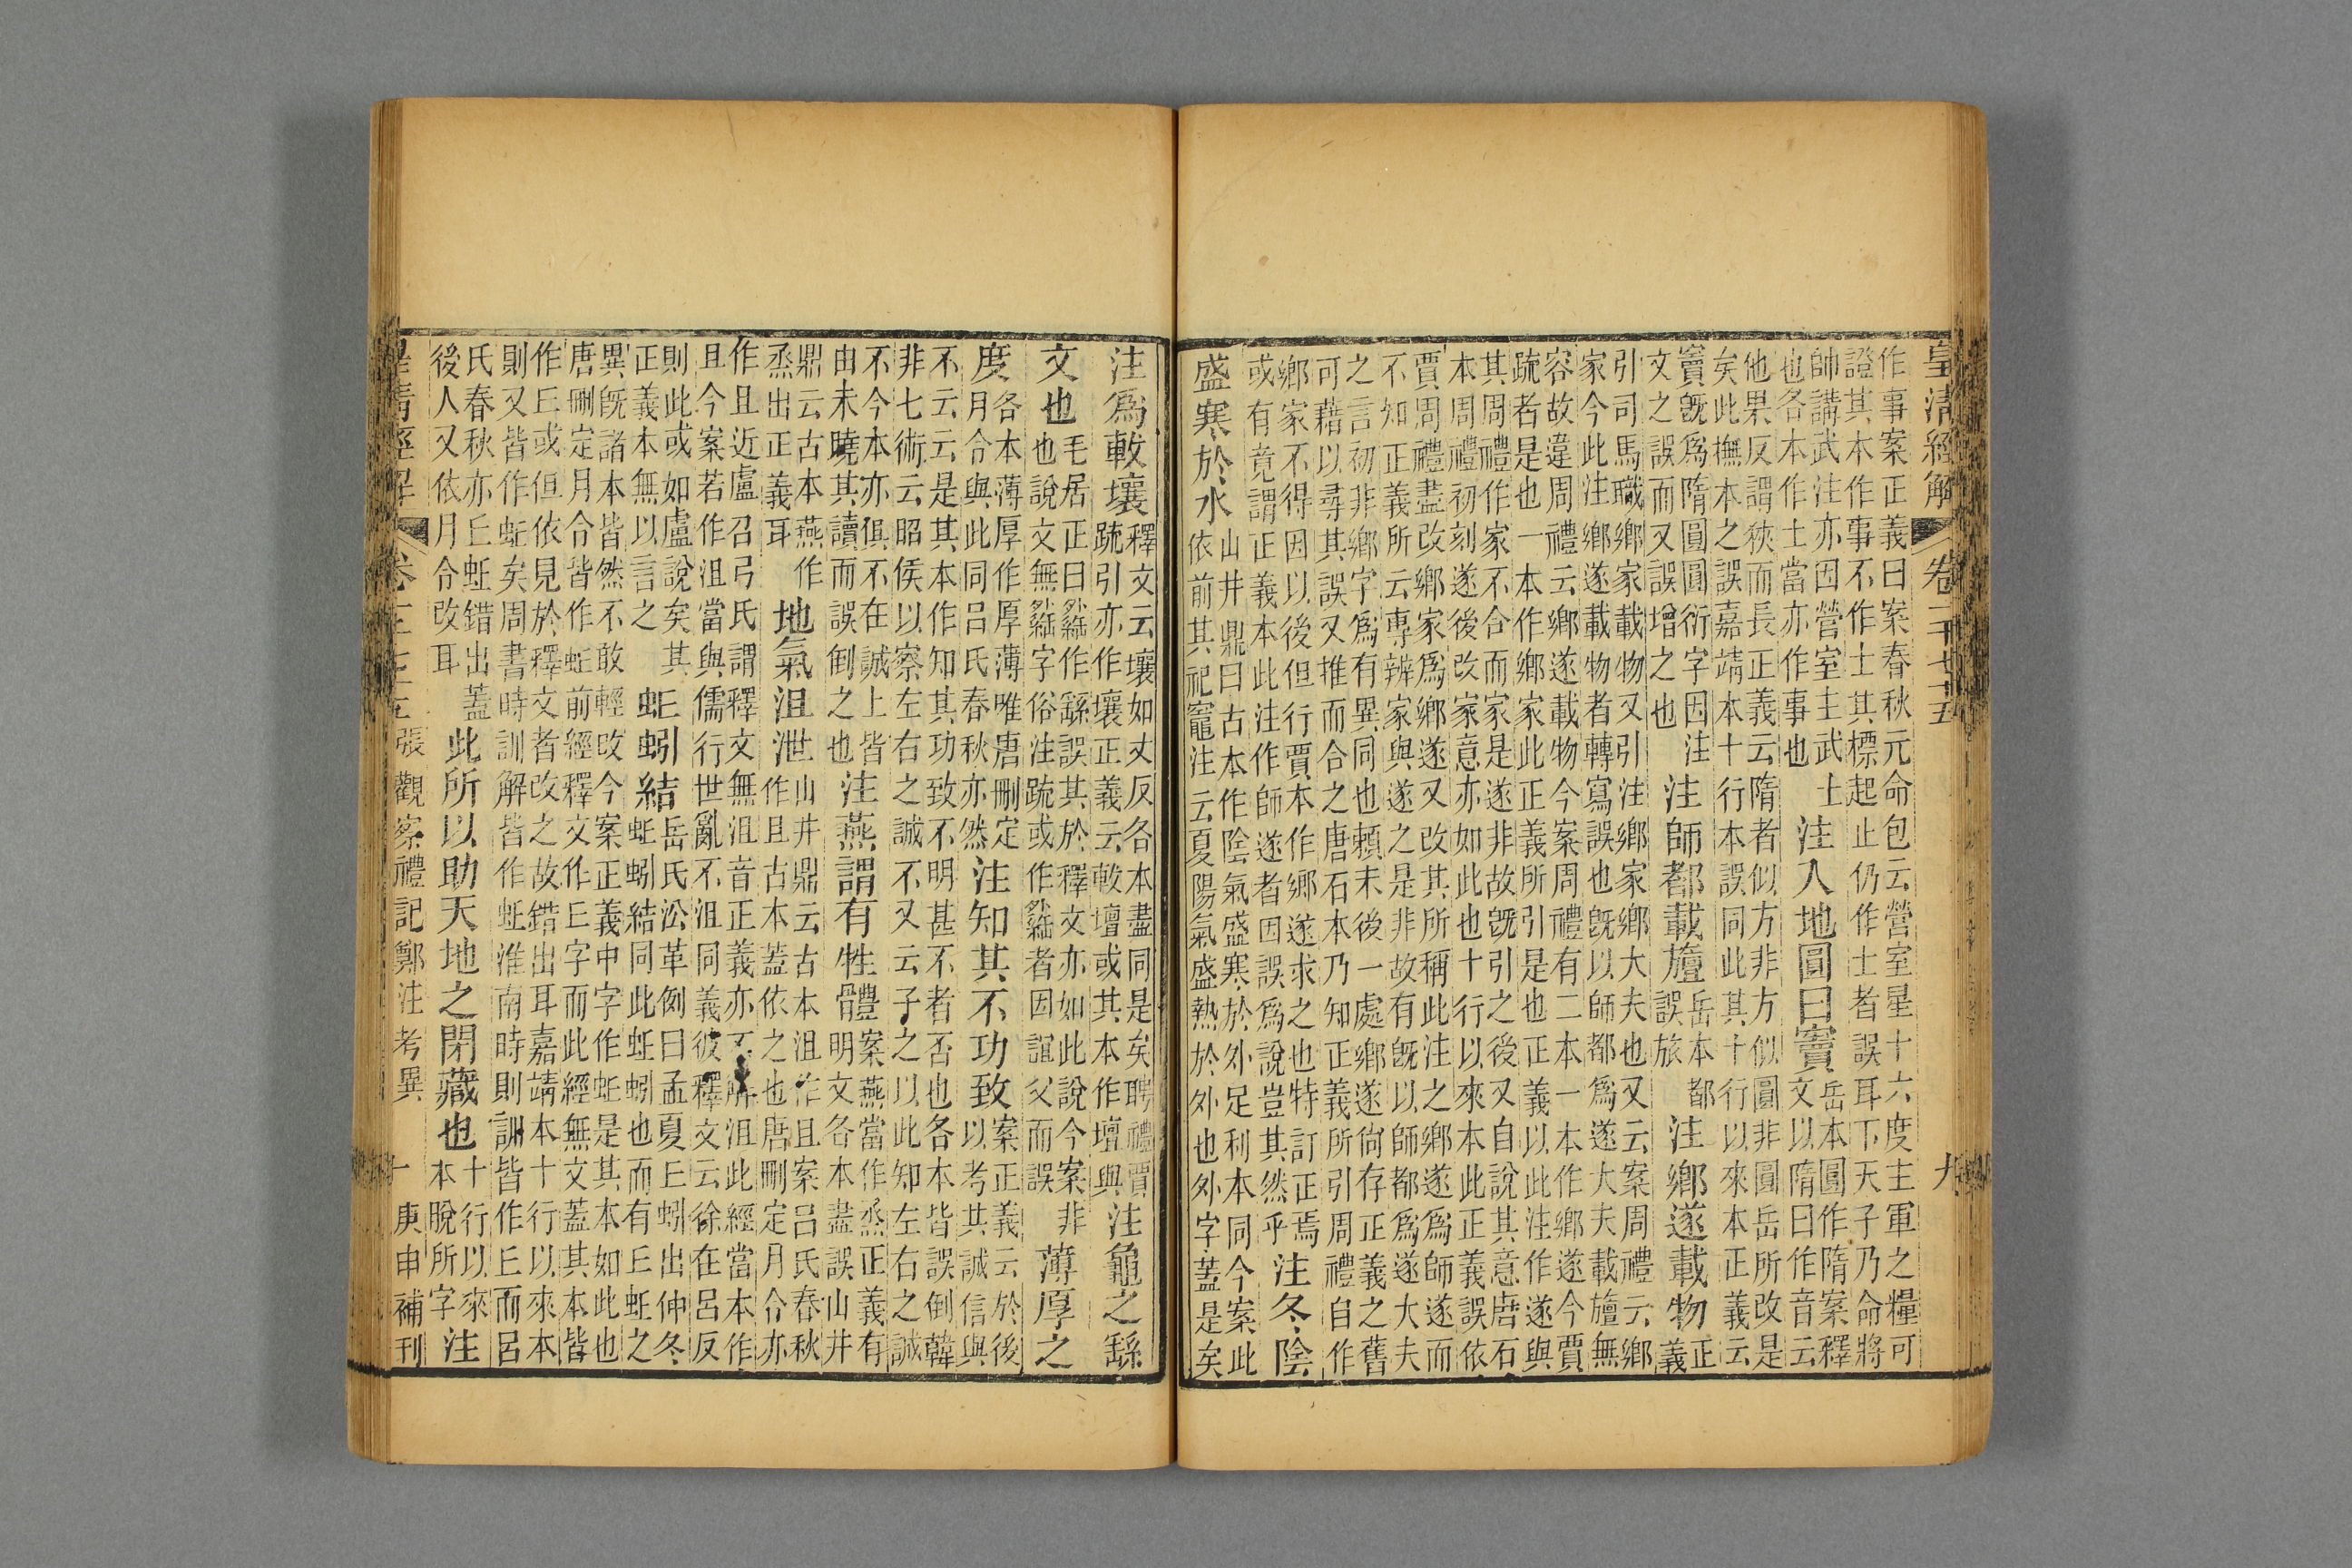 皇清經解 卷一千七十五 九
作事案正義曰案春秋元命包云營室星十六度主軍之糧可
證其本作事不作士其標起止仍作士者誤耳下天子乃命將
帥講武注亦因營室主武士
也各本作士當亦作事也
注入地圓曰竇
岳本圓作隋案釋
文以隋曰作音云
他果反謂狹而長正義云隋者似方非方似圓非圓岳所改是
矣此撫本之誤嘉靖本十行本誤同此其十行以來本正義云
竇既爲隋圓圓衍字因注
文之誤而又誤增之也
注師都載旜
岳本都
誤旅
注鄉遂載物
正
義
引司馬職鄉家載物又引注鄉家鄉大夫也又云案周禮云鄉
家今此注鄉遂載物者轉寫誤也既以師都爲遂大夫載旜無
容故違周禮云鄉遂載物今案周禮有二本一本作鄉遂今賈
疏者是也一本作鄉家此正義所引是也正義以此注作遂與
其周禮作家不合而家是遂非故既引之後又自說其意唐石
本周禮初刻遂後改家意亦如此也十行以來本此正義誤依
賈周禮盡改鄉家爲鄉遂又改其所稱此注之鄉遂爲師遂而
不知正義所云專辨家與遂之是非故有既以師都爲遂大夫
之言初非鄉字爲有異同也賴末後一處鄉遂尙存正義之舊
可藉以尋其誤又推而合之唐石本乃知正義所引周禮自作
鄉家不得因以後但行賈本作鄉遂求之也特訂正焉
或有竟謂正義本此注作師遂者因誤爲說豈其然乎
注冬陰
盛寒於水
山井鼎曰古本作陰氣盛寒於外足利本同今案此
依前其祀竈注云夏陽氣盛熱於外也外字葢是矣
注爲軷壤
釋文云壤如丈反各本盡同是矣聘禮賈
疏引亦作壤正義云軷壇或其本作壇與
注龜之繇
文也
毛居正曰䌛作繇誤其於釋文亦如此說今案非
也說文無䌛字俗注疏或作䌛者因誼父而誤
薄厚之
度
各本薄厚作厚薄唯唐刪定
月令與此同呂氏春秋亦然
注知其不功致
案正義云於後
以考其誠信與
不云云是其本作知其功致不明甚不者否也各本皆誤倒韓
非七術云昭侯以察左右之誠不又云子之以此知左右之誠
不今本亦俱不在誠上皆
由未曉其讀而誤倒之也
注燕謂有牲體
案燕當作烝正義有
明文各本盡誤山井
鼎云古本燕作
烝出正義耳
地氣沮泄
山井鼎云古本沮作且案呂氏春秋
作且古本葢依之也唐刪定月令亦
作且近盧召弓氏謂釋文無沮音正義亦不解沮此經當本作
且今案若作沮當與儒行世亂不沮同義彼釋文云徐在呂反
則此或如盧說矣其
正義本無以言之
蚯蚓結
岳氏沿革例曰孟夏丘蚓出仲冬
蚯蚓結同此蚯蚓也而有丘蚯之
異既諸本皆然不敢輕改今案正義中字作蚯是其本如此也
唐刪定月令皆作蚯前經釋文作丘字而此經無文葢其本皆
作丘或但依見於釋文者改之故錯出耳嘉靖本十行以來本
則又皆作蚯矣周書時訓解皆作蚯淮南時則訓皆作丘而呂
氏春秋亦丘蚯錯出葢
後人又依月令改耳
此所以助天地之閉藏也
十行以來
本脫所字
注
皇清經解 卷一千七十五 張觀察禮記鄭注考異 十 庚申補刊